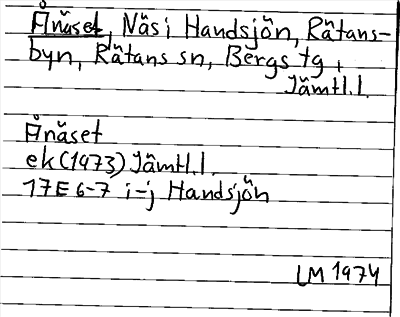 Ånäset, Näs i Handsjön, Rätans-
byn, Rätans sn, Bergs tg,
Jämtl.l.
Ånäset
ek (1973) Jämtl.l.
17E 6-7 i-j Handsjön
LM 1974